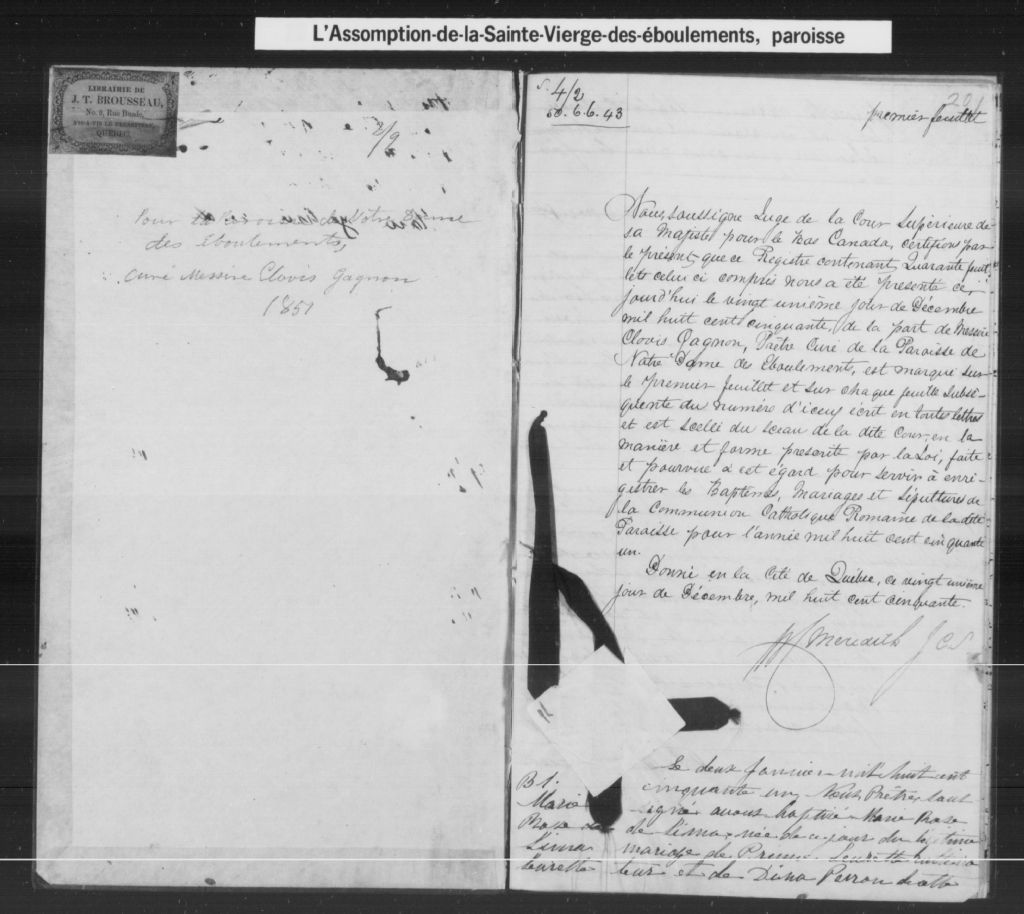 L'Assomption-de-la-Sainte-Vierge-des-éboulements, paroisse
LIBRAIRIE DE
J. T. BROUSSEAU,
No. 9, Rue Buade,
VIS-À-VIS LE PRESBYTÈRE,
QUÉBEC.
2/9
Pour la Paroisse de Notre Dame
des éboulements,
curé Messire Clovis Gagnon
1851
4/2
6.6.43
premier feuillet
Nous, soussigné Juge de la Cour Supérieure de
sa Majesté pour le Bas Canada, certifions par
le présent que ce Registre contenant Quarante feuil
lets celui ci compris nous a été présenté ce
jourd'hui le vingt unième jour de Décembre
mil huit cent cinquante, de la part de Messire
Clovis Gagnon, Prêtre Curé de la Paroisse de
Notre Dame des Eboulements, est marqué sur
le premier feuillet et sur chaque feuille subsé-
quente du numéro d'iceux écrit en toutes lettres
et est scellé du sceau de la dite Cour, en la
manière et forme prescrite par la Loi, faite
et pourvue à cet égard pour servir à enré-
gistrer les Baptêmes, Mariages et Sépultures de
la Communion Catholique Romaine de la dite
Paroisse pour l'année mil huit cent cinquante
un.
Donné en la Cité de Québec, ce vingt unième
jour de Décembre, mil huit cent cinquante.
Meredith J C S
B 1.
Marie
Rose de
Lima
Leurette
Le deux Janvier mil huit cent
cinquante un, Nous Prêtre sous
signé avons baptisé Marie Rose
de Lima, née de ce jour du légitime
mariage de Leurette cultiva
teur et de Dina Perron de cette